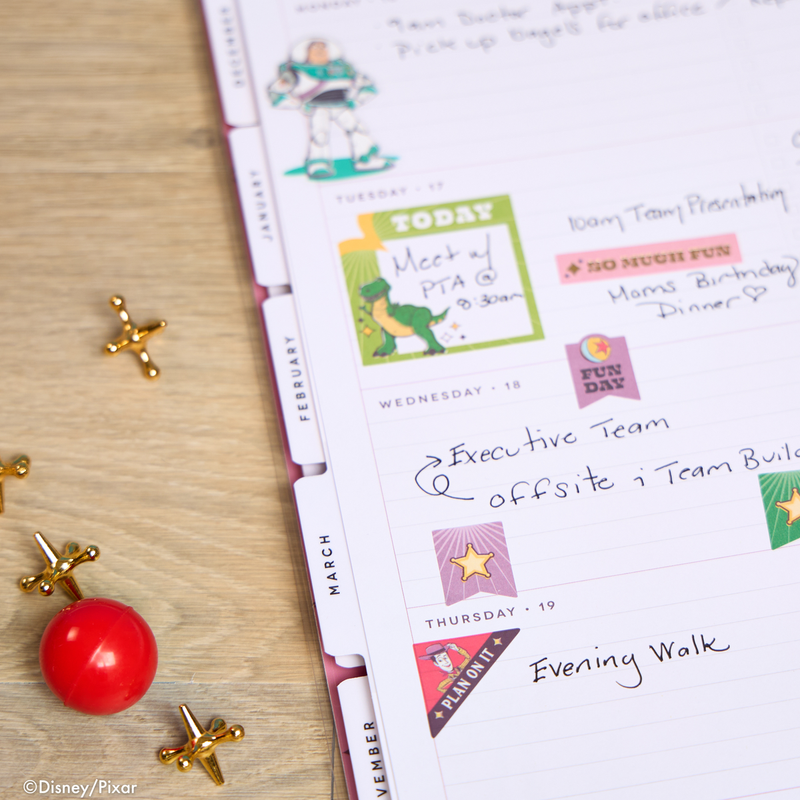 9am Doctor Appt
Pick up Bagels for office /
TUESDAY · 17
TODAY
Meet w/
PTA @
8:30am
10am Team Presentation
SO MUCH FUN
Moms Birthday
Dinner ♡
WEDNESDAY · 18
FUN
DAY
Executive Team
offsite i Team Build
THURSDAY · 19
PLAN ON IT
Evening Walk
DECEMBER
JANUARY
FEBRUARY
MARCH
VEMBER
©Disney/Pixar